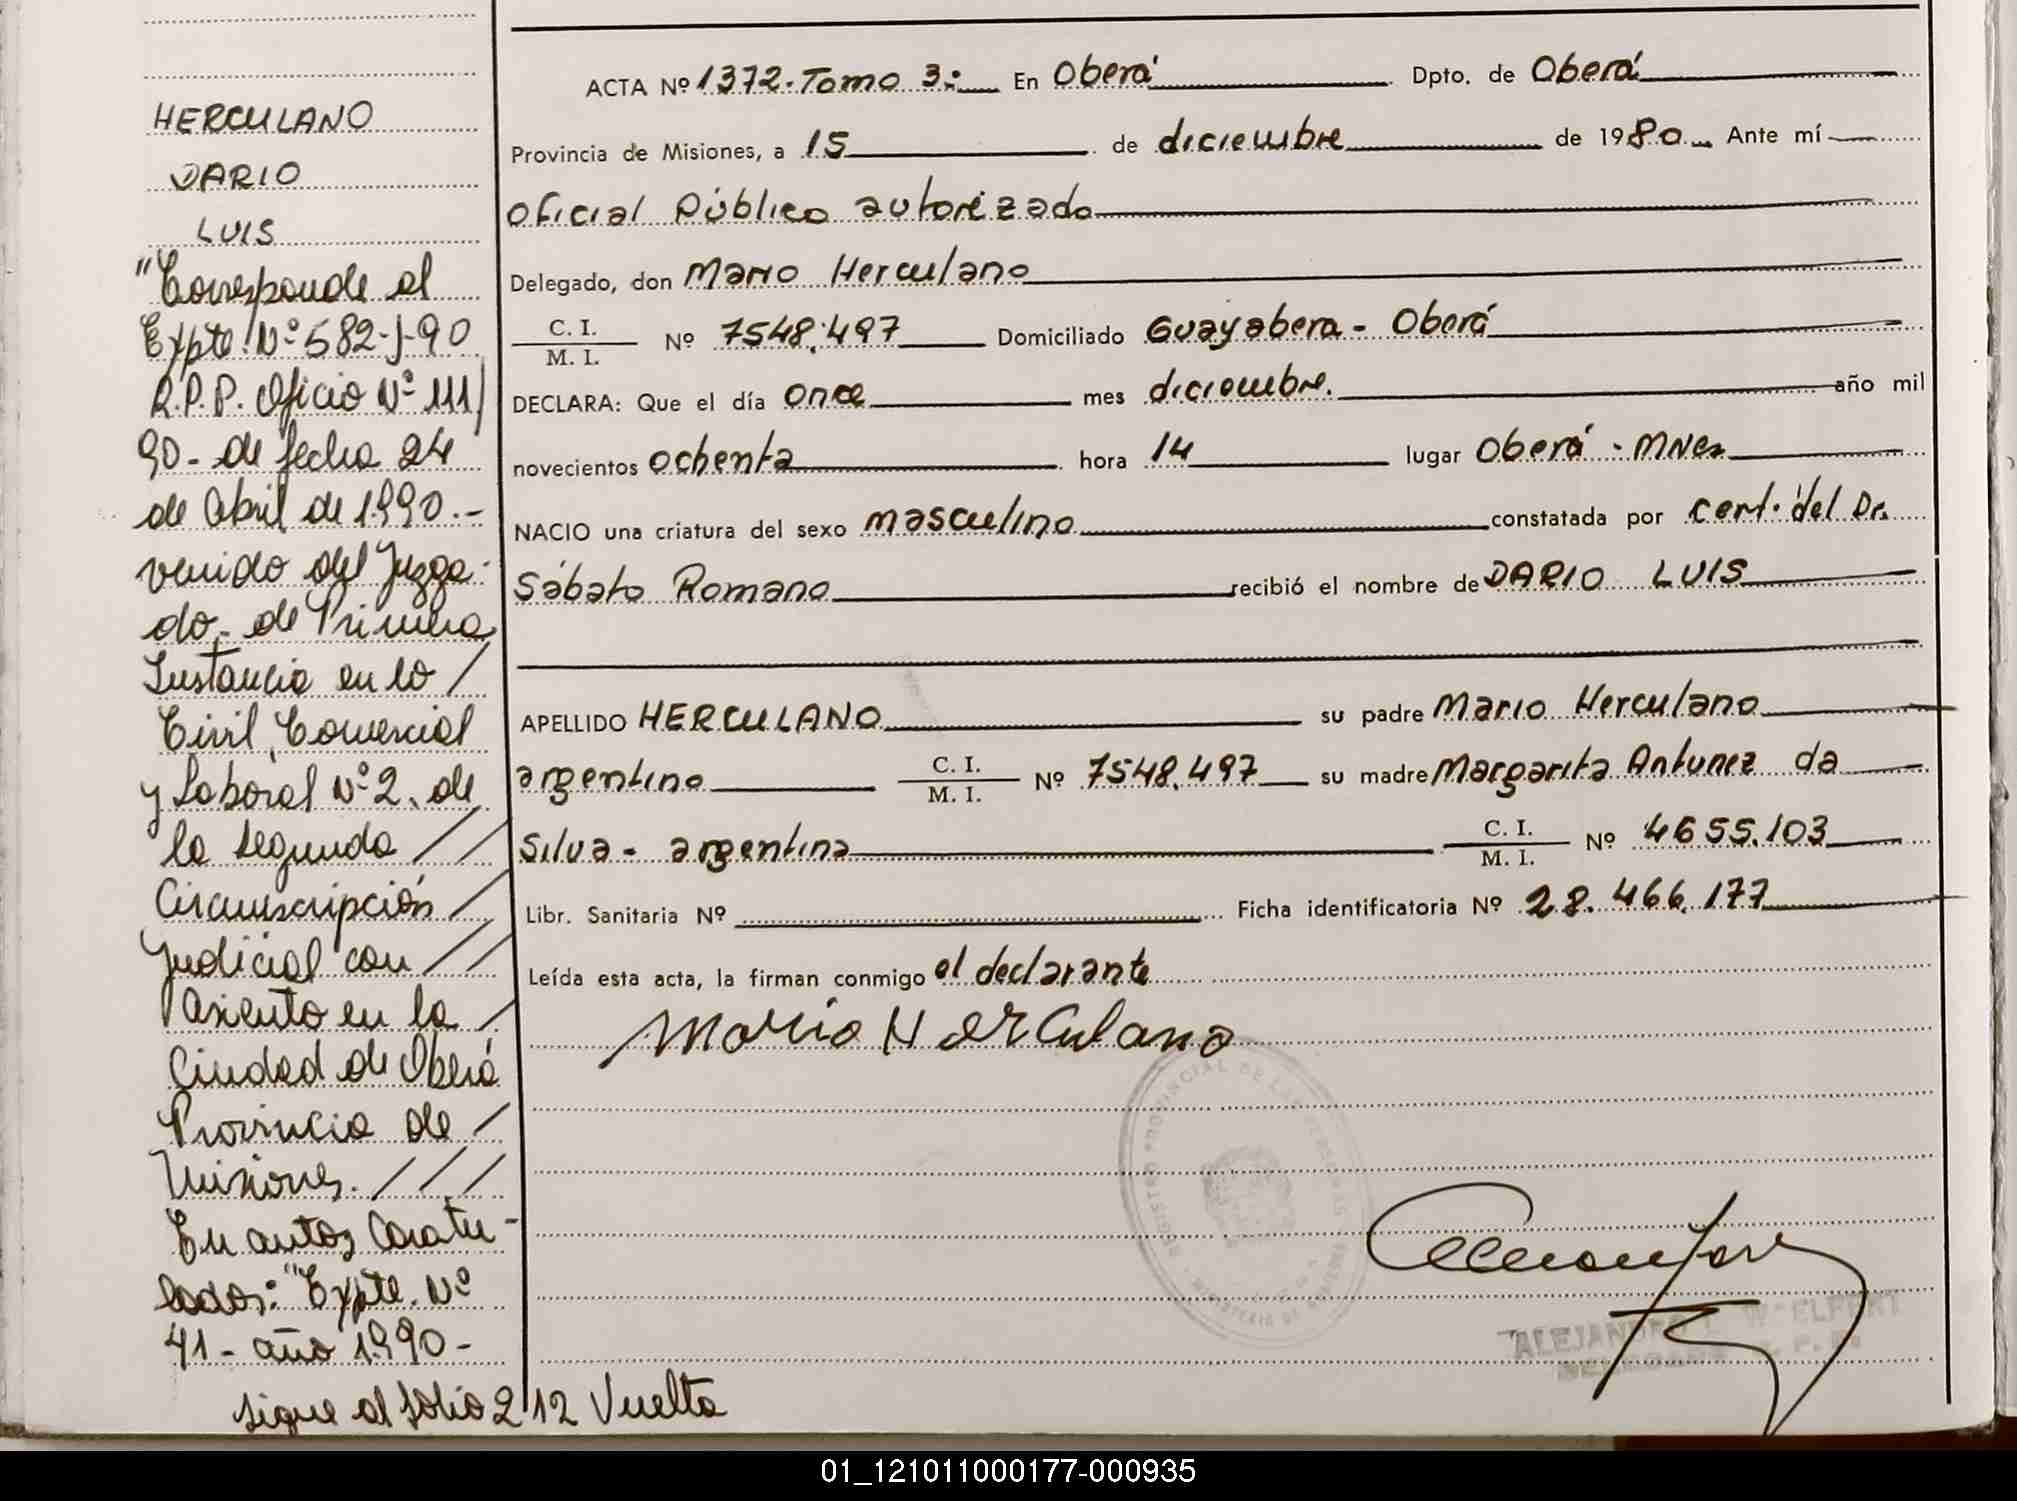 HERCULANO
DARIO
LUIS
"Corresponde al
Expte. Nº 582-J-90
R.P.P. Oficio Nº 111/
90- de fecha 24
de Abril de 1990.-
venido del Juzga-
do.- de Primera
Instancia en lo /
Civil, Comercial
y Laboral Nº 2. de
la segunda //
Circunscripción /
Judicial con //
Asiento en la /
Ciudad de Oberá
Provincia de /
Misiones. ///
En autos Caratu-
lados: "Expte. Nº
41- año 1990-
sigue al folio 212 Vuelta
ACTA Nº 1372. Tomo 3:- En Oberá Dpto. de Oberá
Provincia de Misiones, a 15 de diciembre de 1980 Ante mí
Oficial Público autorizado
Delegado, don Mario Herculano
C. I. / M. I. Nº 7548.497 Domiciliado Guayabera - Oberá
DECLARA: Que el día once mes diciembre. año mil
novecientos ochenta hora 14 lugar Oberá - MNes
NACIO una criatura del sexo masculino constatada por cert. del Dr.
Sábato Romano recibió el nombre de DARIO LUIS
APELLIDO HERCULANO su padre Mario Herculano
argentino C. I. / M. I. Nº 7548.497 su madre Margarita Antunez da
Silva - argentina C. I. / M. I. Nº 4655.103
Libr. Sanitaria Nº Ficha identificatoria Nº 28.466.177
Leída esta acta, la firman conmigo el declarante
Mario Herculano
REGISTRO PROVINCIAL DE LAS PERSONAS
MINISTERIO DE
ALEJANDRO
01_121011000177-000935